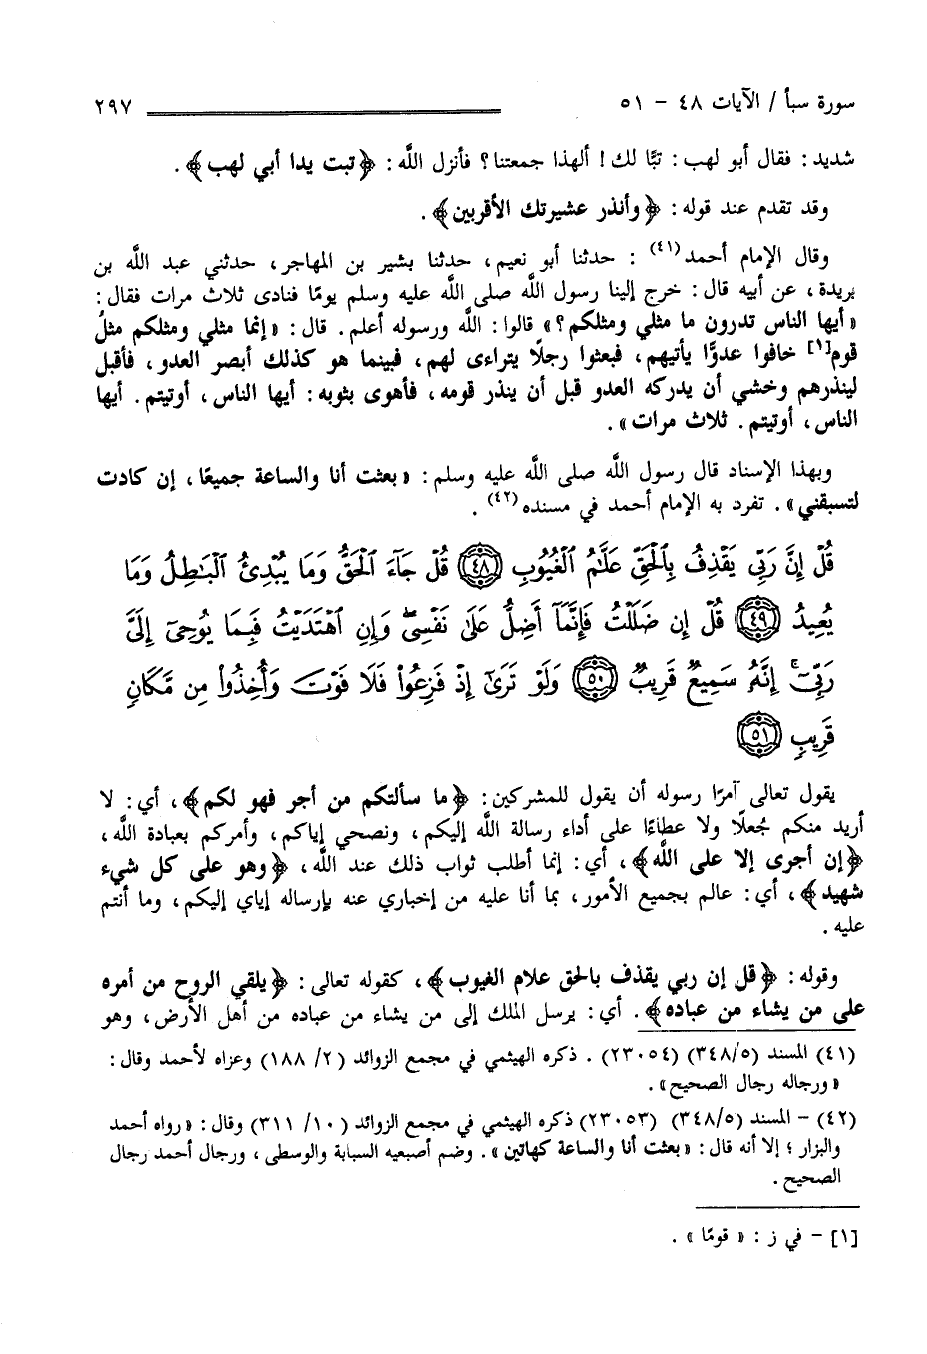 سورة سبأ / الآيات ٤٨ - ٥١ ٢٩٧
شديد : فقال أبو لهب : تبًّا لك ! ألهذا جمعتنا ؟ فأنزل اللَّه : ﴿تبت يدا أبي لهب﴾ .
وقد تقدم عند قوله : ﴿وأنذر عشيرتك الأقربين﴾ .
وقال الإمام أحمد(٤١) : حدثنا أبو نعيم ، حدثنا بشير بن المهاجر ، حدثني عبد اللَّه بن
بريدة ، عن أبيه قال : خرج إلينا رسول اللَّه صلى اللَّه عليه وسلم يومًا فنادى ثلاث مرات فقال :
« أيها الناس تدرون ما مثلي ومثلكم ؟ » قالوا : اللَّه ورسوله أعلم . قال : « إنما مثلي ومثلكم مثلُ
قوم[١] خافوا عدوًّا يأتيهم ، فبعثوا رجلًا يتراءى لهم ، فبينما هو كذلك أبصر العدو ، فأقبل
لينذرهم وخشي أن يدركه العدو قبل أن ينذر قومه ، فأهوى بثوبه : أيها الناس ، أوتيتم . أيها
الناس ، أوتيتم . ثلاث مرات » .
وبهذا الإسناد قال رسول اللَّه صلى اللَّه عليه وسلم : « بعثت أنا والساعة جميعًا ، إن كادت
لتسبقني » . تفرد به الإمام أحمد في مسنده(٤٢) .
قُلْ إِنَّ رَبِّي يَقْذِفُ بِٱلْحَقِّ عَلَّٰمُ ٱلْغُيُوبِ ٤٨ قُلْ جَآءَ ٱلْحَقُّ وَمَا يُبْدِئُ ٱلْبَٰطِلُ وَمَا
يُعِيدُ ٤٩ قُلْ إِن ضَلَلْتُ فَإِنَّمَآ أَضِلُّ عَلَىٰ نَفْسِىۖ وَإِنِ ٱهْتَدَيْتُ فَبِمَا يُوحِىٓ إِلَىَّ
رَبِّىٓۚ إِنَّهُۥ سَمِيعٌ قَرِيبٌ ٥٠ وَلَوْ تَرَىٰٓ إِذْ فَزِعُوا۟ فَلَا فَوْتَ وَأُخِذُوا۟ مِن مَّكَانٍ
قَرِيبٍ ٥١
يقول تعالى آمرًا رسوله أن يقول للمشركين : ﴿ما سألتكم من أجر فهو لكم﴾ ، أي : لا
أريد منكم جُعلًا ولا عطاءًا على أداء رسالة اللَّه إليكم ، ونصحي إياكم ، وأمركم بعبادة اللَّه ،
﴿إن أجرى إلا على اللَّه﴾ ، أي : إنما أطلب ثواب ذلك عند اللَّه ، ﴿وهو على كل شيء
شهيد﴾ ، أي : عالم بجميع الأمور ، بما أنا عليه من إخباري عنه بإرساله إياي إليكم ، وما أنتم
عليه .
وقوله : ﴿قل إن ربي يقذف بالحق علام الغيوب﴾ ، كقوله تعالى : ﴿يلقي الروح من أمره
على من يشاء من عباده﴾ . أي : يرسل الملك إلى من يشاء من عباده من أهل الأرض ، وهو
(٤١) المسند (٣٤٨/٥) (٢٣٠٥٤) . ذكره الهيثمي في مجمع الزوائد (٢/ ١٨٨) وعزاه لأحمد وقال :
« ورجاله رجال الصحيح » .
(٤٢) - المسند (٣٤٨/٥) (٢٣٠٥٣) ذكره الهيثمي في مجمع الزوائد (١٠/ ٣١١) وقال : « رواه أحمد
والبزار ؛ إلا أنه قال : « بعثت أنا والساعة كهاتين » . وضم أصبعيه السبابة والوسطى ، ورجال أحمد رجال
الصحيح .
[١] - في ز : « قومًا » .